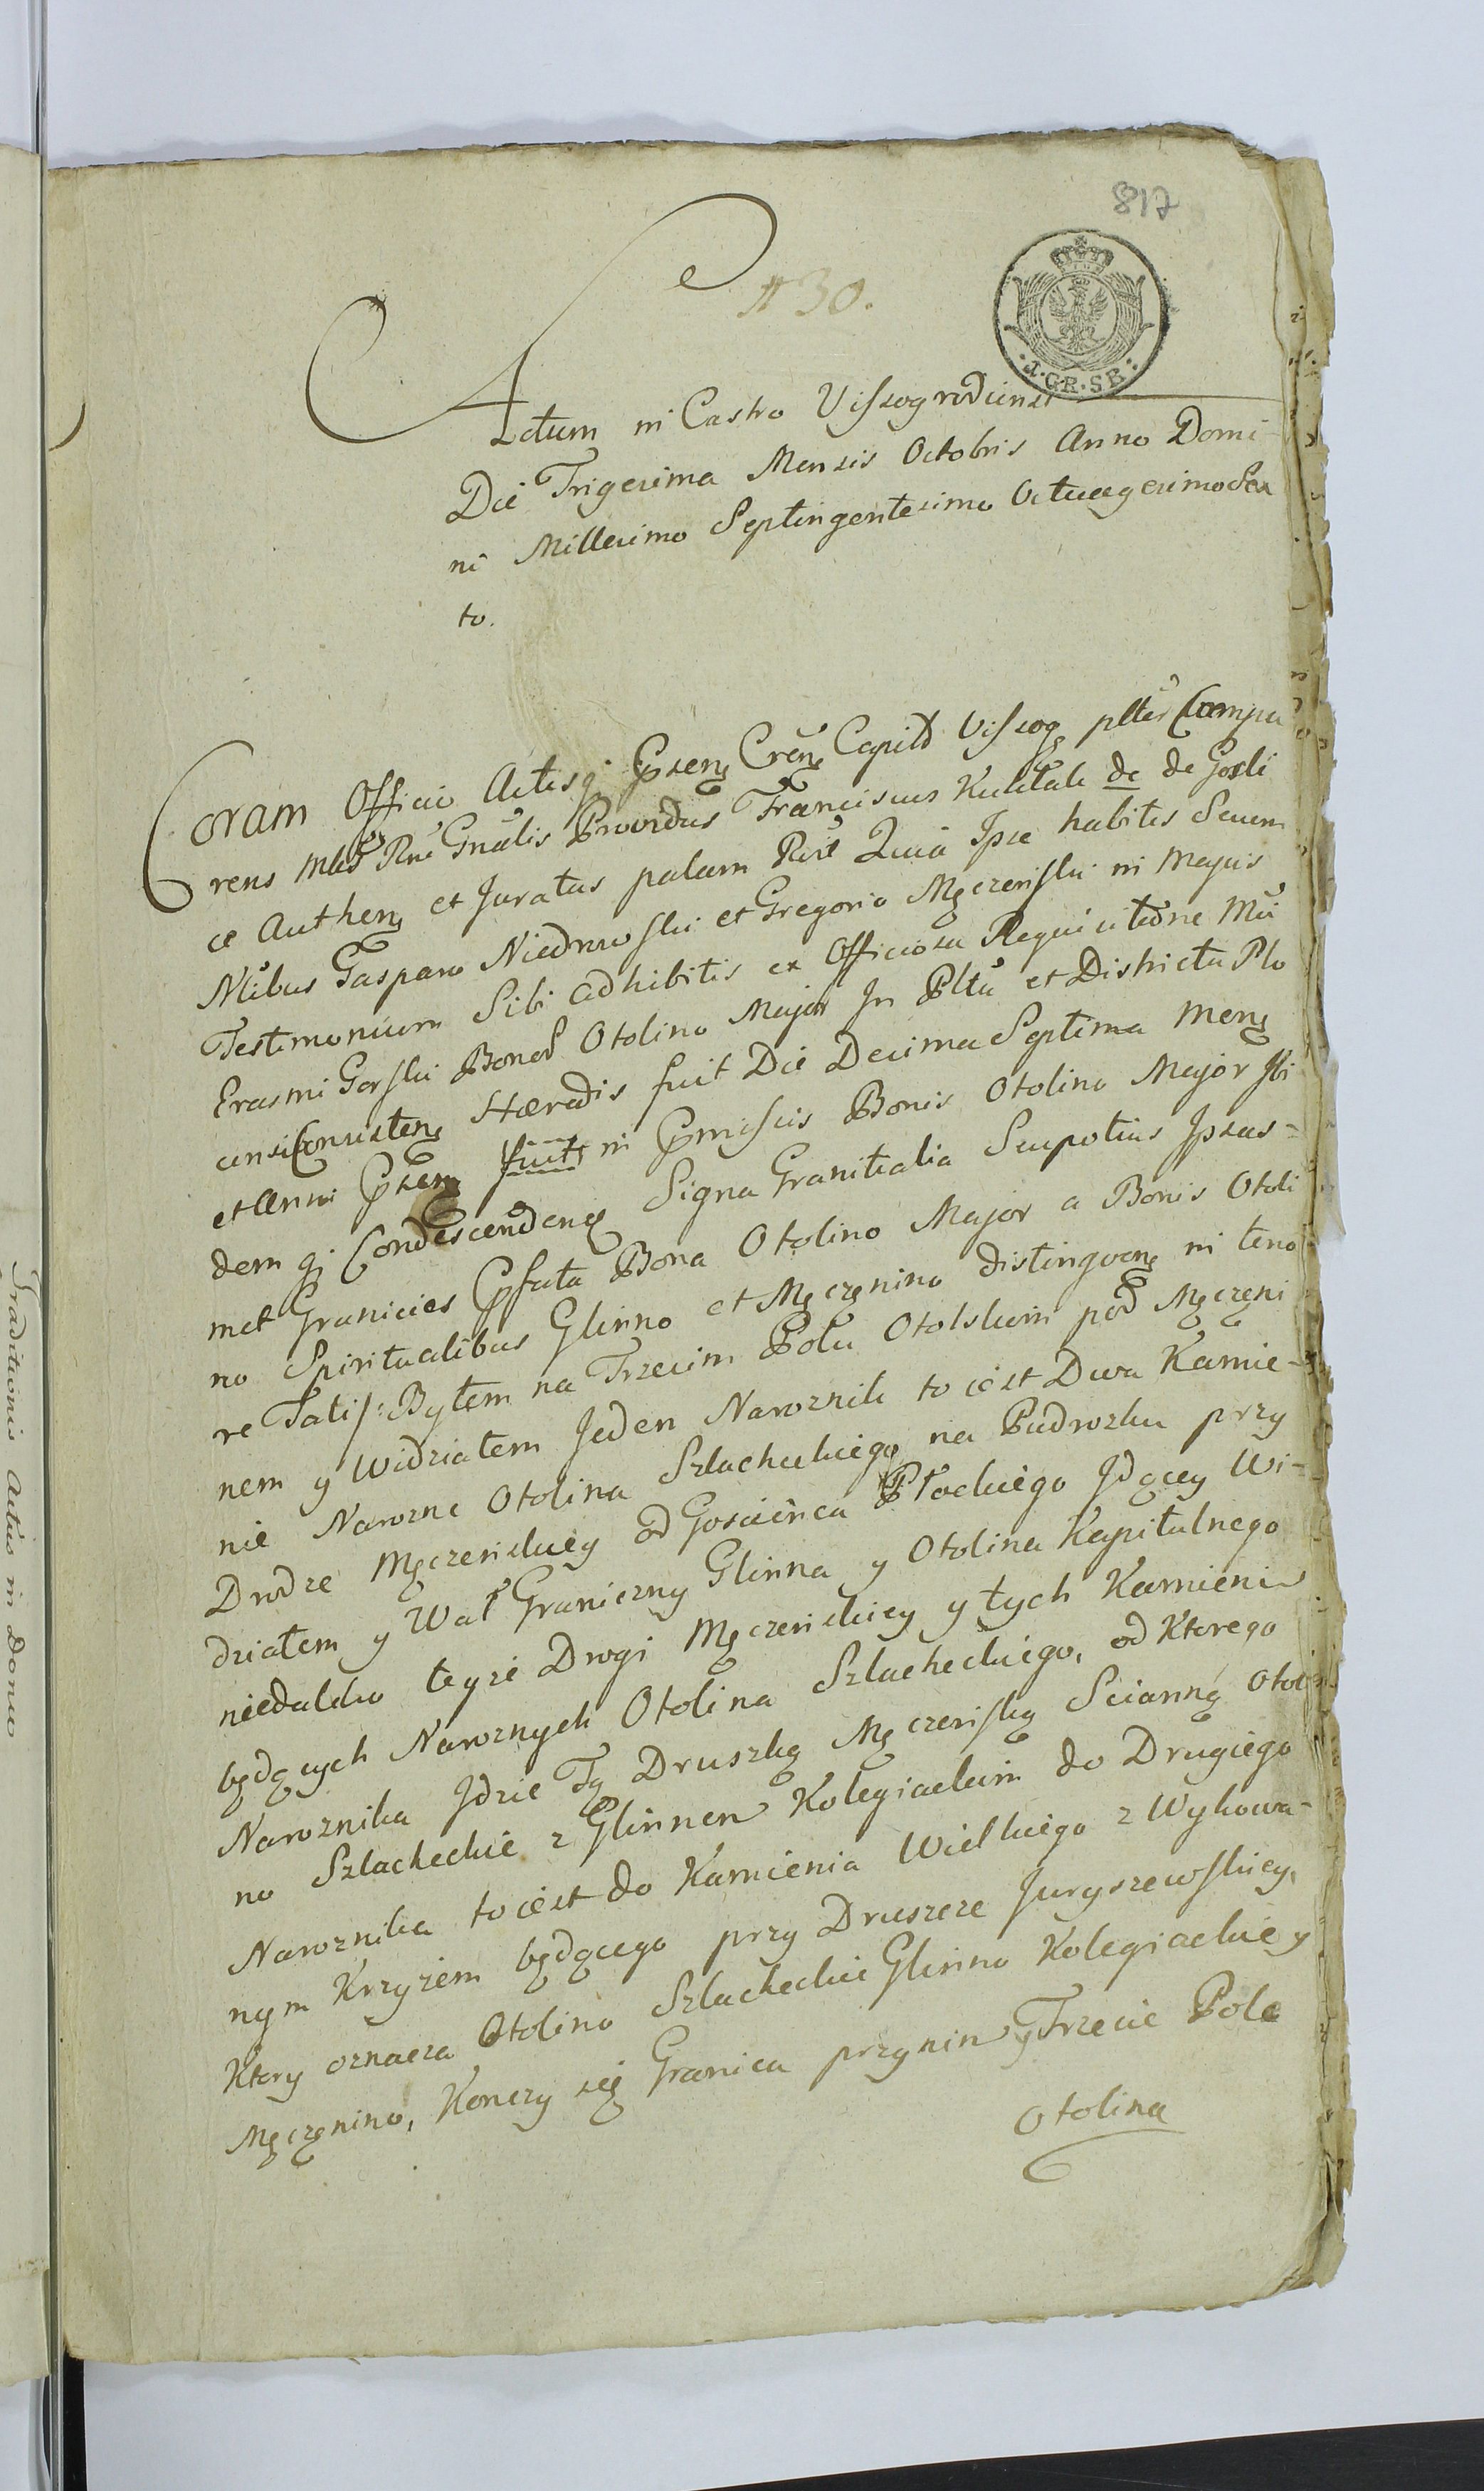 817
# 30.
1.GR.SR.
Actum in Castro Vissogrodiensi
Die Trigesima Mensis Octobris Anno Domi-
ni Millesimo Septingentesimo Octuagesimo Sex
to.
Coram Officio Actisq; Ppsens Crens Capitd Vissog ptter Compa
rens Mtd Rni Gnalis Providus Franciscus Kuklak de de Gosli
ce Authens et Juratus palam Rvit Quia Ipse habitis Secum
Nlibus Gasparo Niedrwoski et Gregorio Męczeński in Majus
Testimonium Sibi adhibitis ex Officiosa Requisitione Mci
Erasmi Gorski Bonor Otolino Major In Pltu et Districtu Plo
censi Consistens Haeredis fuit Die Decima Septima Mens
et Anni Ppsen fuit in Ppmissis Bonis Otolino Major Ibi
demqi Condescendens Signa Granicialia Seupotius Ipsas-
met Granicies Ppfata Bona Otolino Major a Bonis Otoli
no Spiritualibus Glinno et Męczęnino distinguens in teno
re Tali: Byłem na Trzecim Polu Otolskim pod Męczęni
nem y Widziałem Jeden Naroznik to iest Dwa Kamie-
nie Narozne Otolina Szlacheckiego na Padrozku przy
Drodze Męczeńskiey od Gościńca Płockiego Jdącey Wi-
działem y Wał Graniczny Glinna y Otolina Kapitulnego
niedaleko teyże Drogi Męczeńskiey y tych Kamieni
będących Naroznych Otolina Szlacheckiego, od Ktorego
Naroznika Jdzie Tą Druszką Męczeńską Scianną Otoli
no Szlacheckie z Glinnem Kolegiackim do Drugiego
Naroznika to iest do Kamienia Wielkiego z Wykowa-
nym Krzyżem będącego przy Druszcze Juryszewskiey,
Ktory oznacza Otolino Szlacheckie Glinno Kolegiackie y
Męczęnino, Konczy się Granica przynim y Trzecie Pole
Otolina
Traditionis Actio in Donco